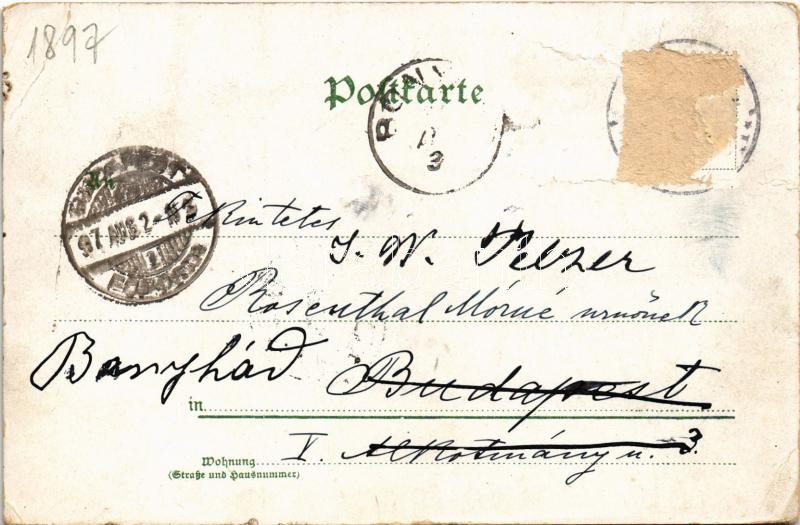 1897
Postkarte
BONY
An
97 AUG 2
A
3
Tekintetes
J. W.
Rosenthal Mórné urnőnek
Bonyhád
Budapest
in
V. Alkotmány u. 3.
Wohnung
(Straße und Hausnummer)